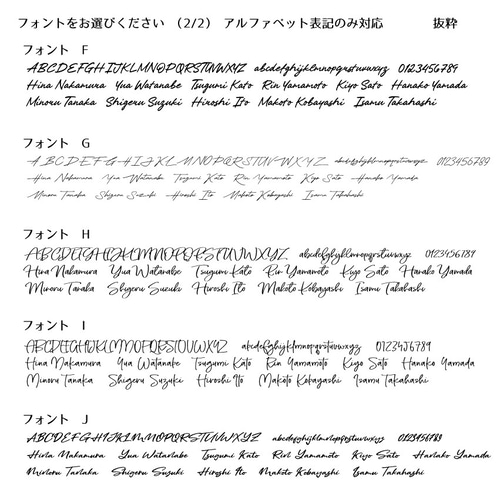 フォントをお選びください （2/2） アルファベット表記のみ対応 抜粋
フォント F
ABCDEFGHIJKLMNOPQRSTUVWXYZ abcdefghijklmnopqrstuvwxyz 0123456789
Hina Nakamura Yua Watanabe Tsugumi Kato Rin Yamamoto Kiyo Sato Hanako Yamada
Minoru Tanaka Shigeru Suzuki Hiroshi Ito Makoto Kobayashi Isamu Takahashi
フォント G
ABCDEFGHIJKLMNOPQRSTUVWXYZ abcdefghijklmnopqrstuvwxyz 0123456789
Hina Nakamura Yua Watanabe Tsugumi Kato Rin Yamamoto Kiyo Sato Hanako Yamada
Minoru Tanaka Shigeru Suzuki Hiroshi Ito Makoto Kobayashi Isamu Takahashi
フォント H
ABCDEFGHIJKLMNOPQRSTUVWXYZ abcdefghijklmnopqrstuvwxyz 0123456789
Hina Nakamura Yua Watanabe Tsugumi Kato Rin Yamamoto Kiyo Sato Hanako Yamada
Minoru Tanaka Shigeru Suzuki Hiroshi Ito Makoto Kobayashi Isamu Takahashi
フォント I
ABCDEFGHIJKLMNOPQRSTUVWXYZ abcdefghijklmnopqrstuvwxyz 0123456789
Hina Nakamura Yua Watanabe Tsugumi Kato Rin Yamamoto Kiyo Sato Hanako Yamada
Minoru Tanaka Shigeru Suzuki Hiroshi Ito Makoto Kobayashi Isamu Takahashi
フォント J
ABCDEFGHIJKLMNOPQRSTUVWXYZ abcdefghijklmnopqrstuvwxyz 0123456789
Hina Nakamura Yua Watanabe Tsugumi Kato Rin Yamamoto Kiyo Sato Hanako Yamada
Minoru Tanaka Shigeru Suzuki Hiroshi Ito Makoto Kobayashi Isamu Takahashi